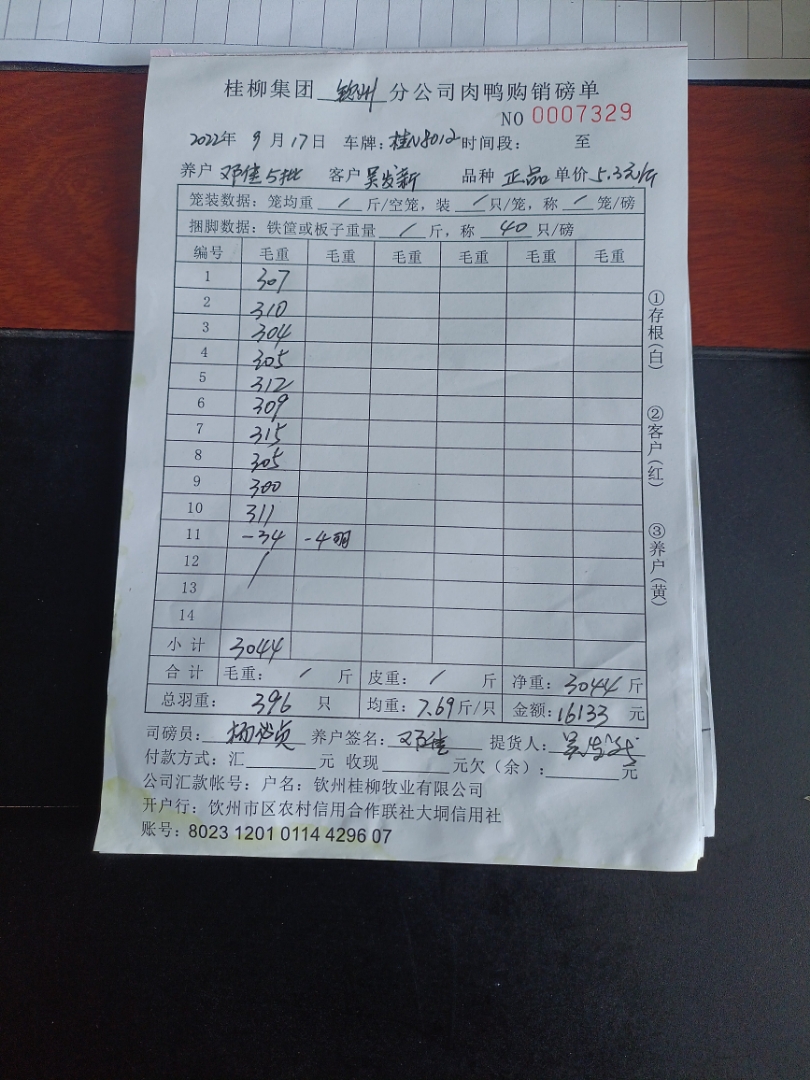 桂柳集团 钦州 分公司肉鸭购销磅单
NO 0007329
2022年 9 月 17 日 车牌：桂N8012 时间段： 至
养户 邓佳5批 客户 吴发新 品种 正品 单价 5.3元/斤
笼装数据：笼均重 / 斤/空笼，装 / 只/笼，称 / 笼/磅
捆脚数据：铁筐或板子重量 / 斤，称 40 只/磅
编号 毛重 毛重 毛重 毛重 毛重 毛重
1 307
2 310
3 304
4 305
5 312
6 309
7 315
8 305
9 300
10 311
11 -34 -4
12 /
13
14
小计 3044
合计 毛重： / 斤 皮重： / 斤 净重：3044 斤
总羽重： 396 只 均重：7.69斤/只 金额：16133 元
司磅员： 养户签名：邓佳 提货人：吴发新
付款方式：汇 元 收现 元欠（余）： 元
公司汇款帐号：户名：钦州桂柳牧业有限公司
开户行：钦州市区农村信用合作联社大垌信用社
账号：8023 1201 0114 4296 07
①存根(白)
②客户(红)
③养户(黄)